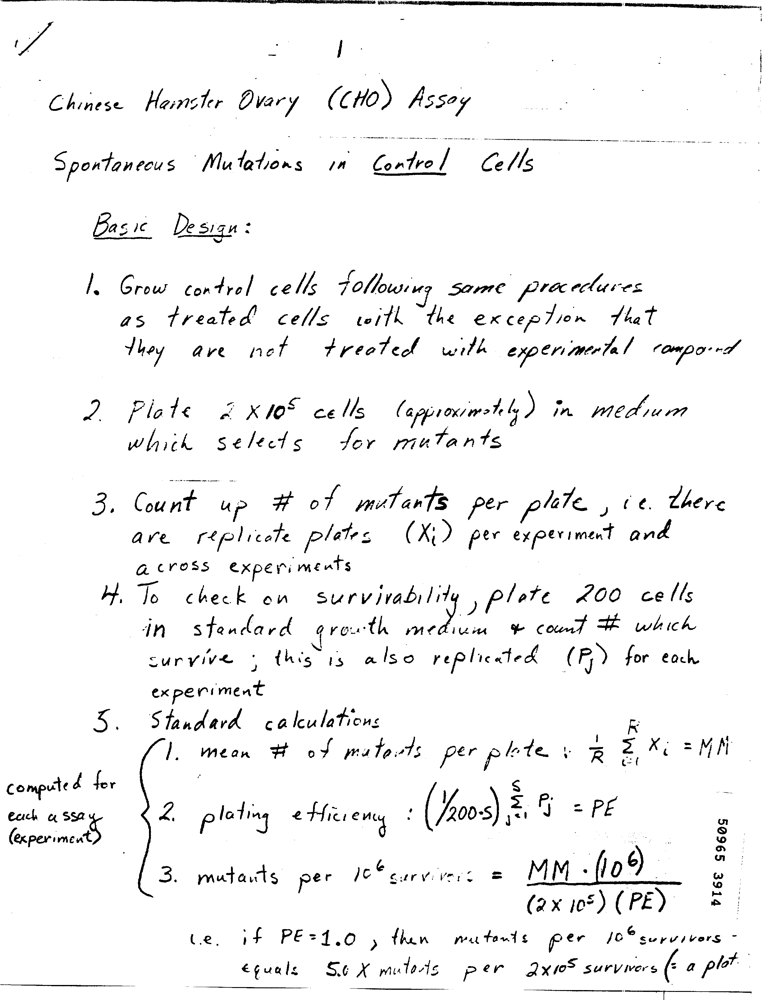 1
Chinese Hamster Ovary (CHO) Assay
Spontaneous Mutations in Control Cells
Basic Design:
1. Grow control cells following same procedures
as treated cells with the exception that
they are not treated with experimental compound
2. Plate 2 X 10⁵ cells (approximately) in medium
which selects for mutants
3. Count up # of mutants per plate, i.e. there
are replicate plates (Xᵢ) per experiment and
across experiments
4. To check on survivability, plate 200 cells
in standard growth medium + count # which
survive; this is also replicated (Pⱼ) for each
experiment
5. Standard calculations
1. mean # of mutants per plate : 1/R Σᵢ₌₁ᴿ Xᵢ = MM
computed for
each assay
(experiment)
2. plating efficiency : (1/200·S) Σⱼ₌₁ˢ Pⱼ = PE
3. mutants per 10⁶ survivors = MM · (10⁶) / (2 x 10⁵) (PE)
i.e. if PE = 1.0, then mutants per 10⁶ survivors
equals 5.0 X mutants per 2x10⁵ survivors (= a plat
50965 3914